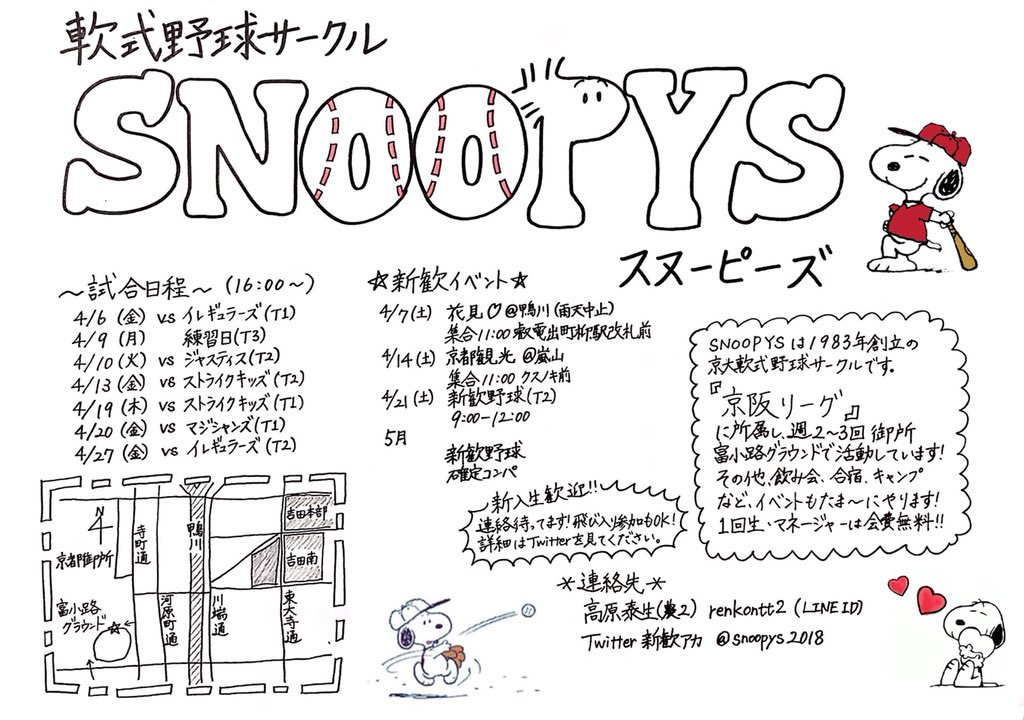 軟式野球サークル
SNOOPYS
スヌーピーズ
～試合日程～ (16:00～)
4/6 (金) vs イレギュラーズ(T1)
4/9 (月) 練習日(T3)
4/10 (火) vs ジャスティス(T2)
4/13 (金) vs ストライクキッズ(T2)
4/19 (木) vs ストライクキッズ(T1)
4/20 (金) vs マジシャンズ(T1)
4/27 (金) vs イレギュラーズ(T2)
☆新歓イベント☆
4/7(土) 花見♡@鴨川(雨天中止)
集合11:00 叡電出町柳駅改札前
4/14(土) 京都観光 @嵐山
集合11:00 クスノキ前
4/21(土) 新歓野球(T2)
9:00-12:00
5月 新歓野球
確定コンパ
SNOOPYSは1983年創立の
京大軟式野球サークルです。
『京阪リーグ』
に所属し、週2～3回 御所
富小路グラウンドで活動しています!
その他、飲み会、合宿、キャンプ
など、イベントもたま～にやります!
1回生、マネージャーは会費無料!!
新入生歓迎!!
連絡待ってます!飛び入り参加もOK!
詳細はTwitterを見てください。
＊連絡先＊
高原泰生(農2) renkontt2 (LINE ID)
Twitter 新歓アカ @snoopys2018
N
京都御所
寺町通
鴨川
吉田本部
吉田南
富小路
グラウンド
河原町通
川端通
東大寺通